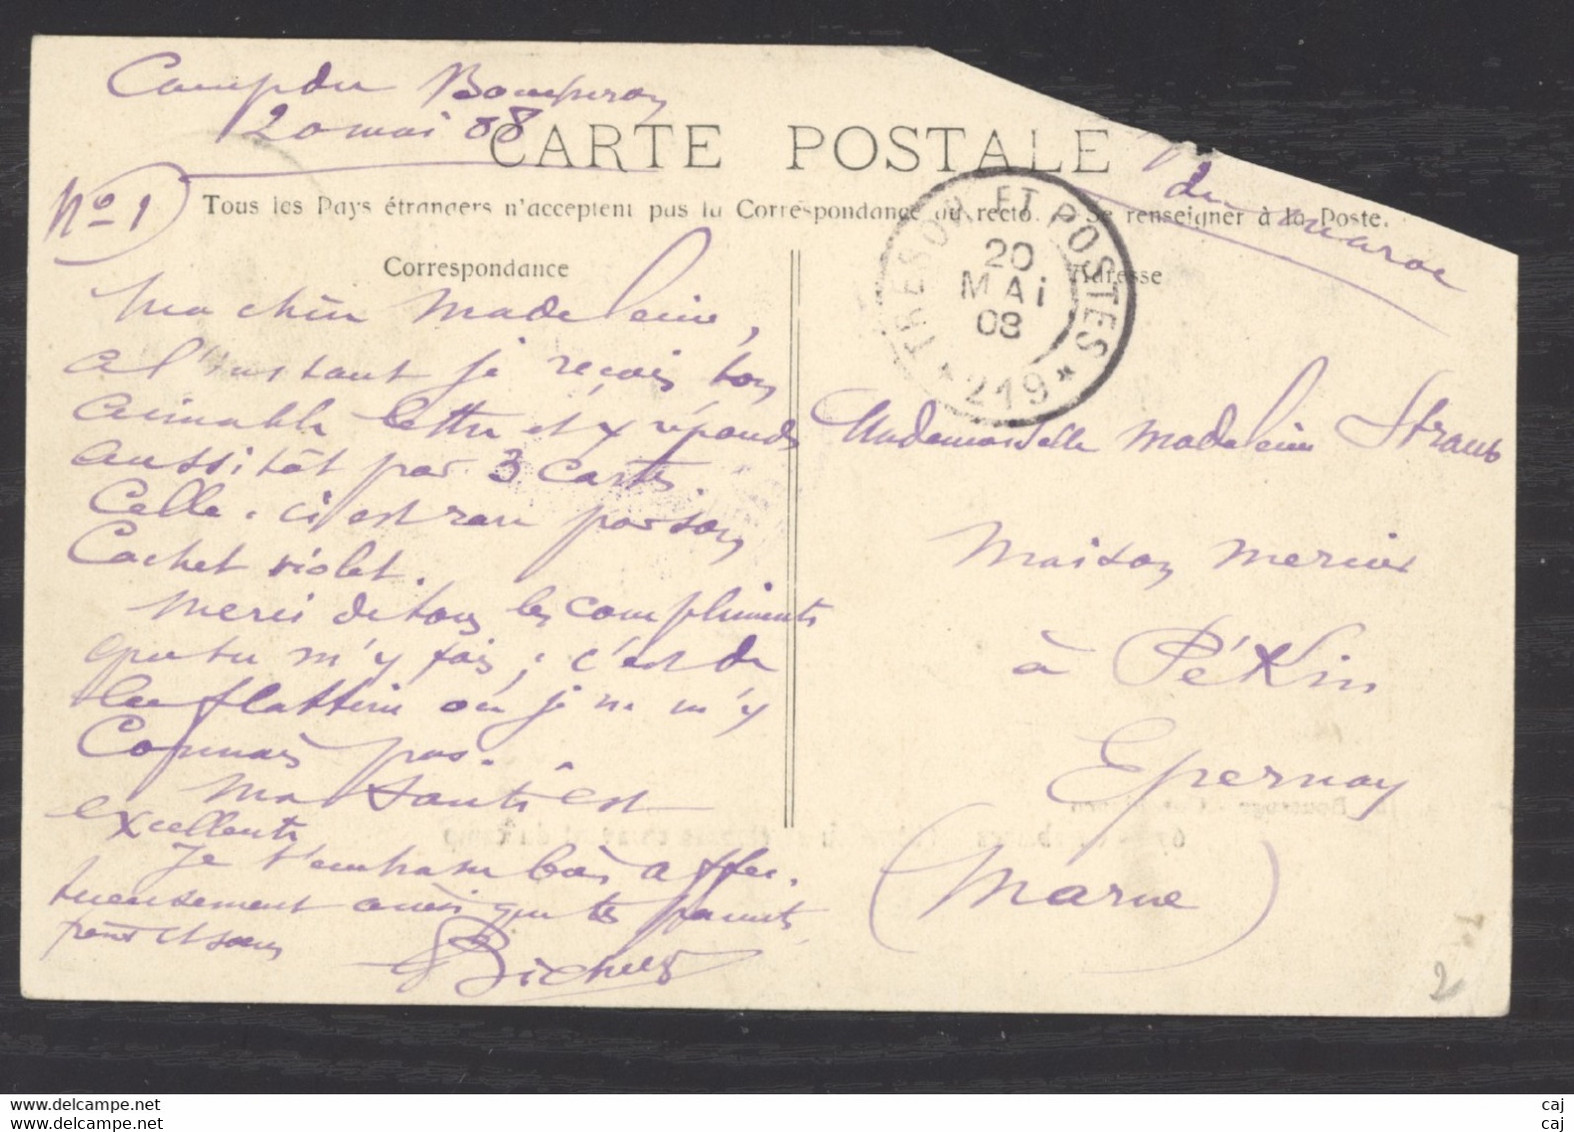 Camp du
20 mai 08
CARTE POSTALE
du Maroc
No 1
Tous les Pays étrangers n'acceptent pas la Correspondance au recto. - Se renseigner à la Poste.
TRESOR ET POSTES
20
MAI
08
* 219 *
Correspondance
Adresse
Ma chère Madeleine,
à l'instant je reçois ton
aimable lettre et y réponds
aussitôt par 3 cartes.
Celle-ci est rare par son
Cachet violet.
Merci de tous les compliments
que tu m'y fais ; c'est de
la flatterie où je ne m'y
Connais pas.
Ma santé est
excellente
Je t'embrasse bien affec-
tueusement ainsi que tes parents,
frère et sœurs
Mademoiselle Madeleine Straub
Maison Mercier
à Pékin
Epernay
(Marne)
2
www.delcampe.net
ours-de-savoie
caj
caj